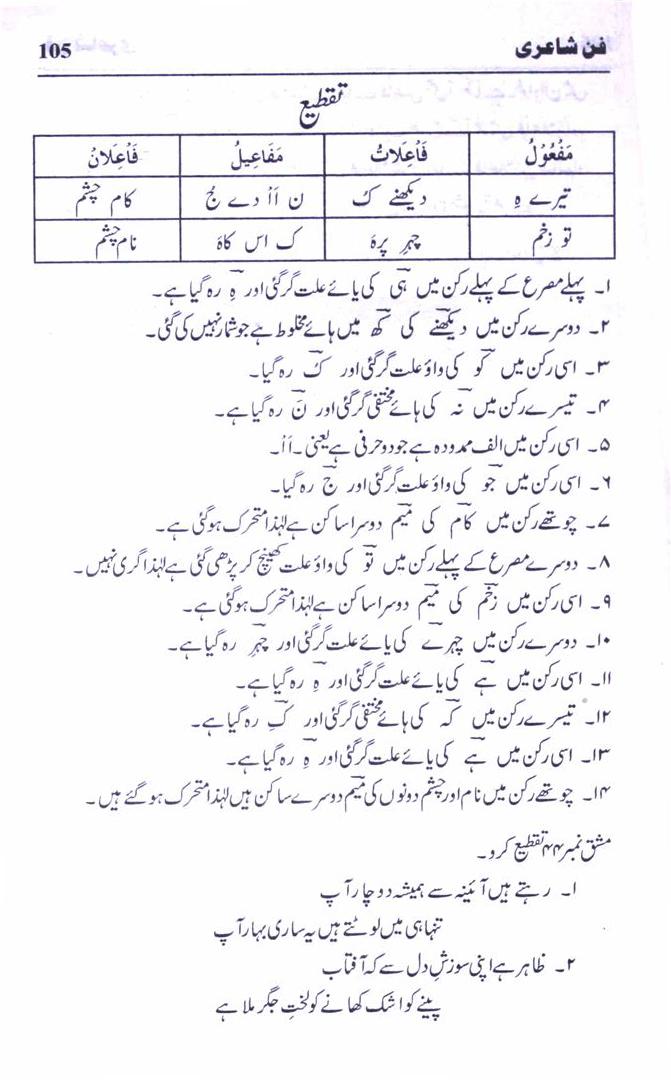 فن شاعری 105
تقطیع
مَفْعُوْلُ فَاْعِلَاتُ مَفَاعِیْلُ فَاْعِلَانُ
تیرے ہِ دیکھنے کُ نَ اَاْ دے جُ کام چشم
تو زخم چہرِ پرہَ کِ اس کاہَ نام چشم
۱۔ پہلے مصرع کے پہلے رکن میں ہی کی یائے علت گر گئی اور ہِ رہ گیا ہے۔
۲۔ دوسرے رکن میں دیکھنے کی کھ میں ہائے مخلوط ہے جو شمار نہیں کی گئی۔
۳۔ اسی رکن میں کو کی واؤ علت گر گئی اور کُ رہ گیا۔
۴۔ تیسرے رکن میں نہ کی ہائے مختفی گر گئی اور نَ رہ گیا ہے۔
۵۔ اسی رکن میں الف ممدودہ ہے جو دو حرفی ہے یعنی ۔اَاْ۔
۶۔ اسی رکن میں جو کی واؤ علت گر گئی اور جُ رہ گیا۔
۷۔ چوتھے رکن میں کام کی میم دوسرا ساکن ہے لہٰذا متحرک ہو گئی ہے۔
۸۔ دوسرے مصرع کے پہلے رکن میں تو کی واؤ علت کھینچ کر پڑھی گئی ہے لہٰذا گری نہیں۔
۹۔ اسی رکن میں زخم کی میم دوسرا ساکن ہے لہٰذا متحرک ہو گئی ہے۔
۱۰۔ دوسرے رکن میں چہرے کی یائے علت گر گئی اور چہرِ رہ گیا ہے۔
۱۱۔ اسی رکن میں ہے کی یائے علت گر گئی اور ہِ رہ گیا ہے۔
۱۲۔ تیسرے رکن میں کہ کی ہائے مختفی گر گئی اور کِ رہ گیا ہے۔
۱۳۔ اسی رکن میں ہے کی یائے علت گر گئی اور ہِ رہ گیا ہے۔
۱۴۔ چوتھے رکن میں نام اور چشم دونوں کی میم دوسرے ساکن ہیں لہٰذا متحرک ہو گئے ہیں۔
مشق نمبر ۴۴ تقطیع کرو۔
۱۔ رہتے ہیں آئینہ سے ہمیشہ دو چار آپ
تنہا ہی میں لوٹتے ہیں یہ ساری بہار آپ
۲۔ ظاہر ہے اپنی سوزشِ دل سے کہ آفتاب
پینے کو اشک کھانے کو لختِ جگر ملا ہے